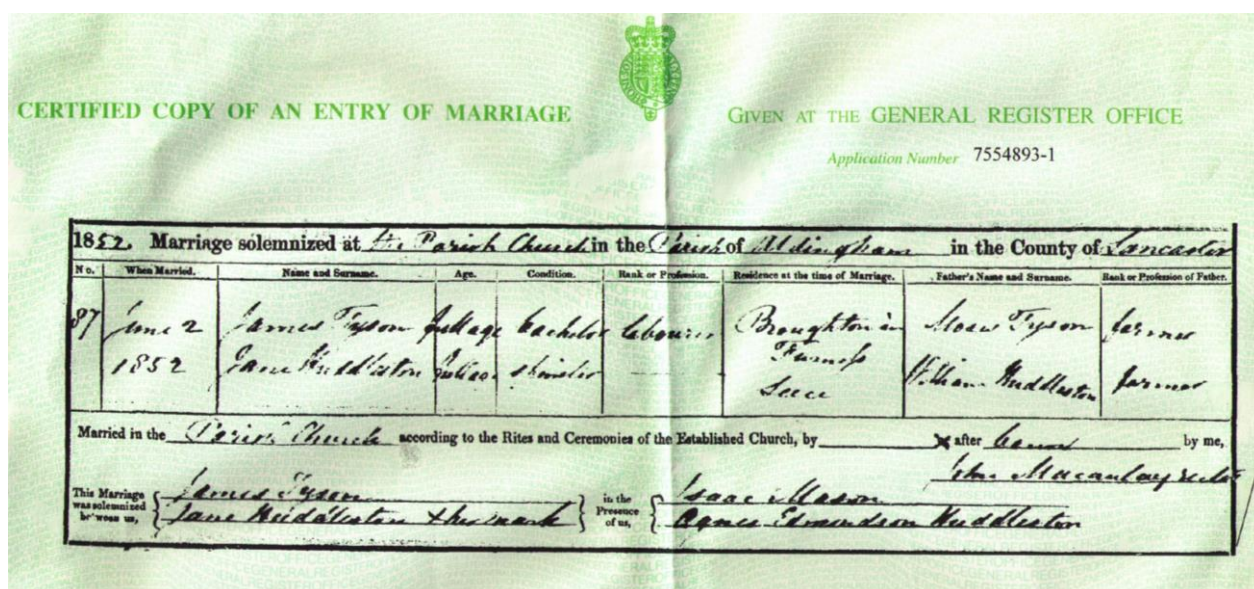 CERTIFIED COPY OF AN ENTRY OF MARRIAGE
GIVEN AT THE GENERAL REGISTER OFFICE
Application Number 7554893-1
1852. Marriage solemnized at the Parish Church in the Parish of Aldingham in the County of Lancaster
No. When Married. Name and Surname. Age. Condition. Rank or Profession. Residence at the time of Marriage. Father's Name and Surname. Rank or Profession of Father.
87 June 2 James Tyson full age bachelor labourer Broughton in Tyson farmer
Furness
1852 Jane Huddleston full age spinster William Huddleston farmer
Leece
Married in the Parish Church according to the Rites and Ceremonies of the Established Church, by after by me,
John Macaulay rector
This Marriage was solemnized between us, James Tyson in the Presence of us, Isaac Mason
Jane Huddleston x her mark Agnes Edmundson Huddleston